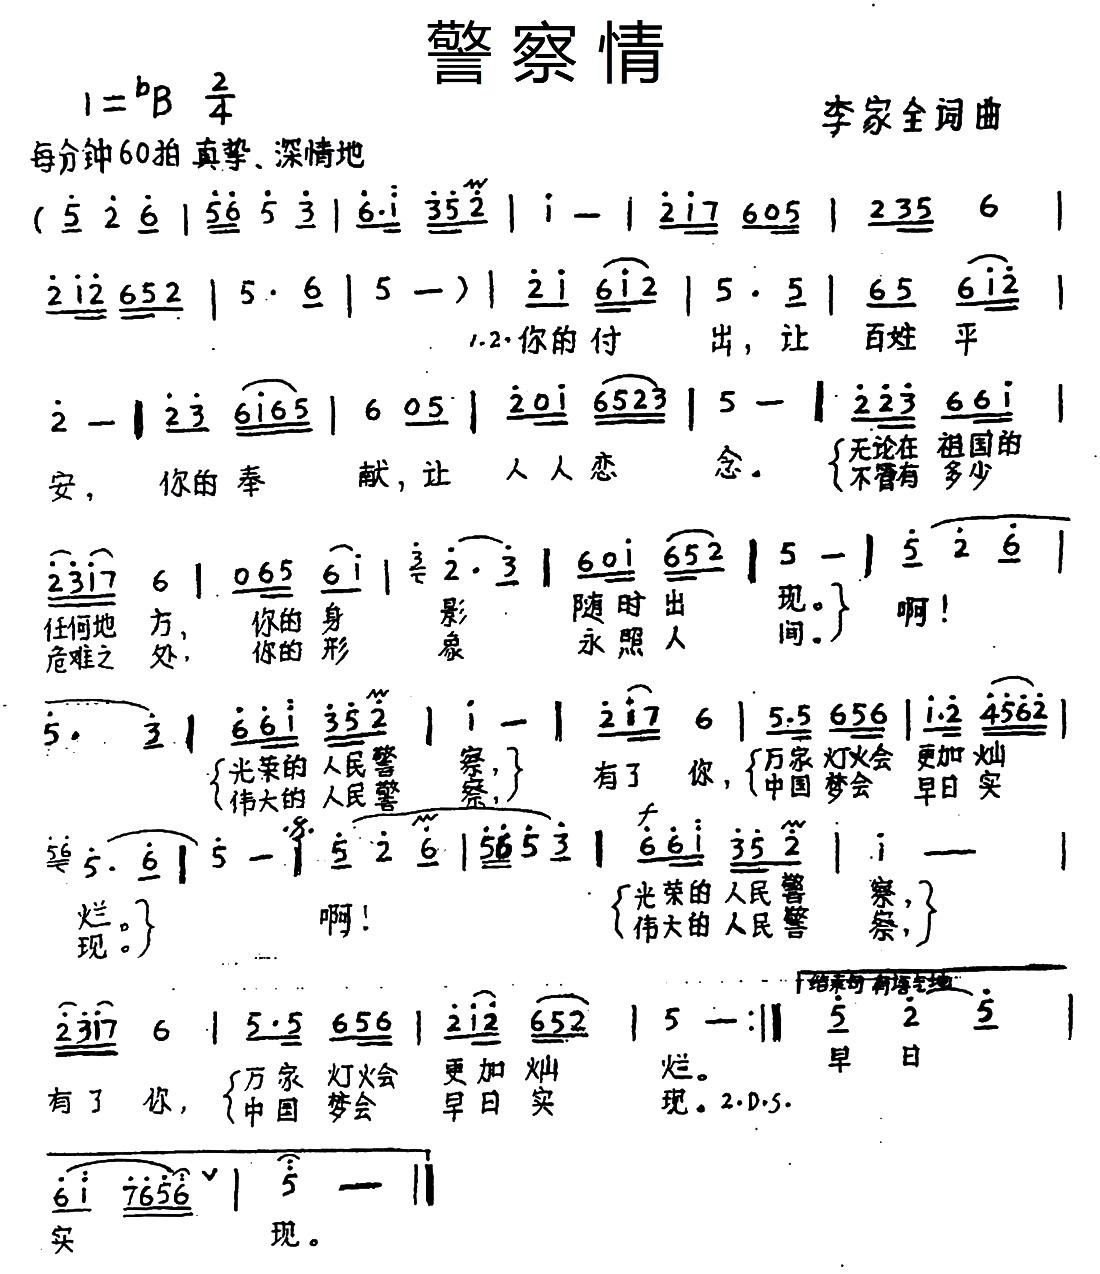 警察情
1=ᵇB 2/4
李家全词曲
每分钟60拍 真挚、深情地
( 5 2 6 | 56 5 3 | 6·i 352 | i — | 2i7 605 | 235 6 |
2i2 652 | 5 · 6 | 5 — ) | 2i 6i2 | 5 · 5 | 65 6i2 |
1.2.你的付 出，让 百姓 平
2 — | 23 6i65 | 6 05 | 20i 6523 | 5 — | 223 66i |
安，你的奉 献，让 人人恋 念。 无论在 祖国的
不管有 多少
23i7 6 | 065 6i | 3 2 · 3 | 60i 652 | 5 — | 5 2 6 |
任何地 方，你的身 影 随时出 现。 啊！
危难之 处，你的形 象 永照人 间。
5 · 3 | 66i 352 | i — | 2i7 6 | 5·5 656 | i·2 4562 |
光荣的 人民警 察， 有了 你，万家 灯火会 更加灿
伟大的 人民警 察， 中国 梦会 早日实
56 5 · 6 | 5 — | 5 2 6 | 5653 | 66i 352 | i — |
f
烂。 啊！ 光荣的 人民警 察，
现。 伟大的 人民警 察，
结束句
23i7 6 | 5·5 656 | 2i2 652 | 5 — :|| 5 2 5 |
有了 你，万家 灯火会 更加灿 烂。 早日
中国 梦会 早日实 现。2.D.S.
6i 7656 ∨ | 5 — ||
实 现。